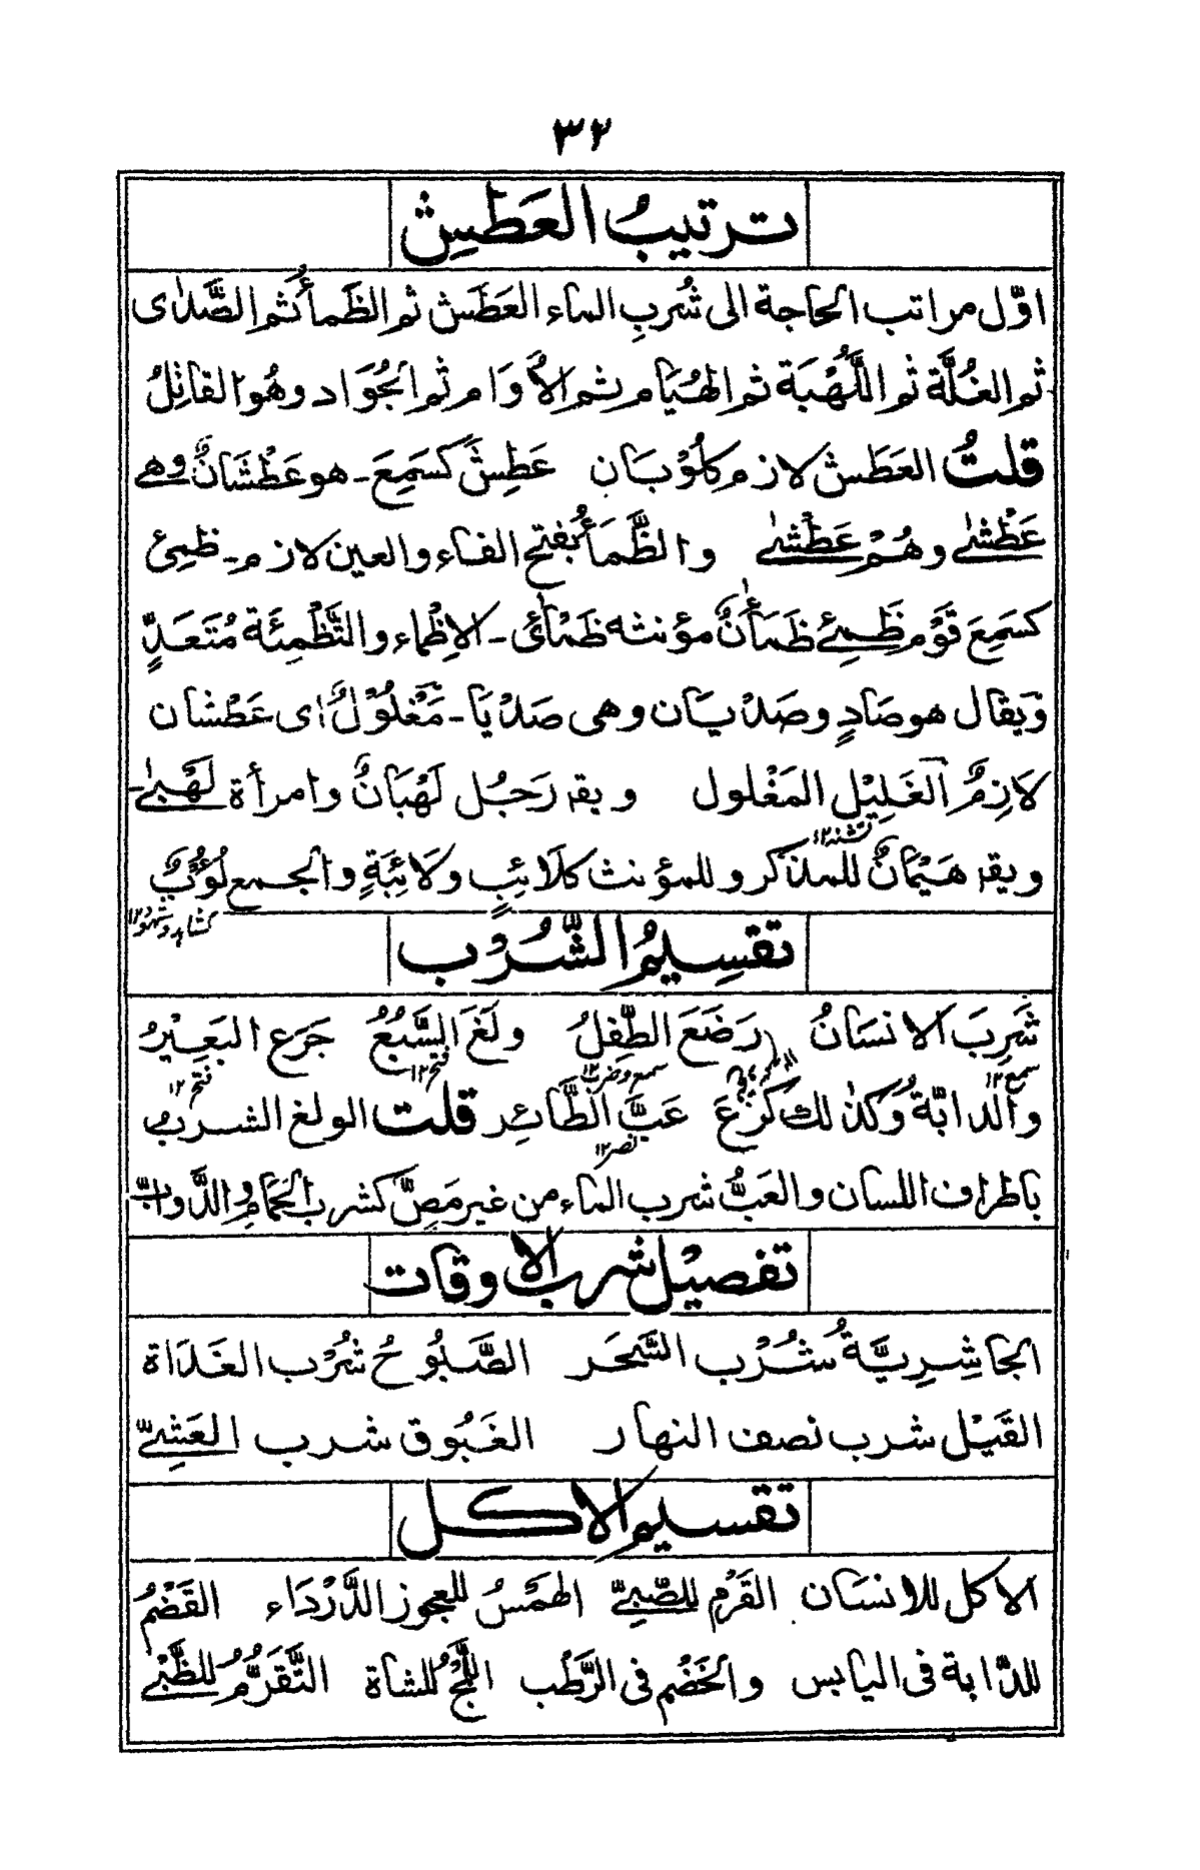 ٣٢
ترتيبُ العَطَسِش
اوّل مراتب الحاجة الى شُربِ الماء العَطَش ثم الظَمأُ ثم الصَّدٰى
ثم الغُلَّة ثم اللُّهْبَة ثم الهُيَام ثم الاُوَام ثم الجُوَاد وهُو القاتِلُ
قلتُ العَطَش لازم كلُوْبَان عَطِشَ كسَمِعَ - هو عَطْشَانٌ وهى
عَطْشٰى وهُمْ عَطْشٰى والظَّمَأُ بفتح الفاء والعين لازم - ظمِئ
كسَمِعَ قَوْم ظَمِئے ظَمَأٰنٌ مؤنثه ظَمْاٰئ - الاِظْماء والتَّظْمِئَة مُتَعَدٍّ
وَيقال هو صَادٍ وصَدْيان وهى صَدْيَا - مَغْلُوْلٌ اى عَطْشان
لازِمٌ الغَلِيْل المَغْلول ويقـ رَجُل لَهْبَانٌ وامرأة لَهْبٰى
تشنہ ١٢
ويقـ هَيْمَانٌ للمذكر وللمؤنث كلَائِبٍ ولَائِبَةٍ والجمع لُوُّبٌ
كشاہد وشہود ١٢
تقسِيمُ الشُّرُوْب
شَرِبَ الانسَانُ رَضَعَ الطِّفلُ ولَغَ السَّبُعُ جَرَع البَعِيْرُ
سمع ١٢ سمع وضرب ١٢ فتح ١٢ فتح ١٢
والدابّة وَكذٰلك كَرَعَ عَبَّ الطَّائِر قلت الولغ الشرب
نصر ١٢
باطراف اللسان والعَبُّ شرب الماء من غير مَصٍّ كشرب الحَمَامِ والدَّوابّ
تفصيل شرب الاوقات
الجاشِرِيَّةُ شُرْب السَّحَر الصَّبُوحُ شُرْب الغَدَاة
القَيْل شرب نصف النهار الغَبُوق شرب العَشِيّ
تقسيم الاكل
الاكل للانسَان القَرْمُ للصَّبِيّ الهَمْسُ للعجوز الدَّرْدَاء القَضْمُ
للدَّابة فى اليابس والخَضْم فى الرَّطْب اللَّجُّ للشاة التَّقَرُّمُ للظَّبْي